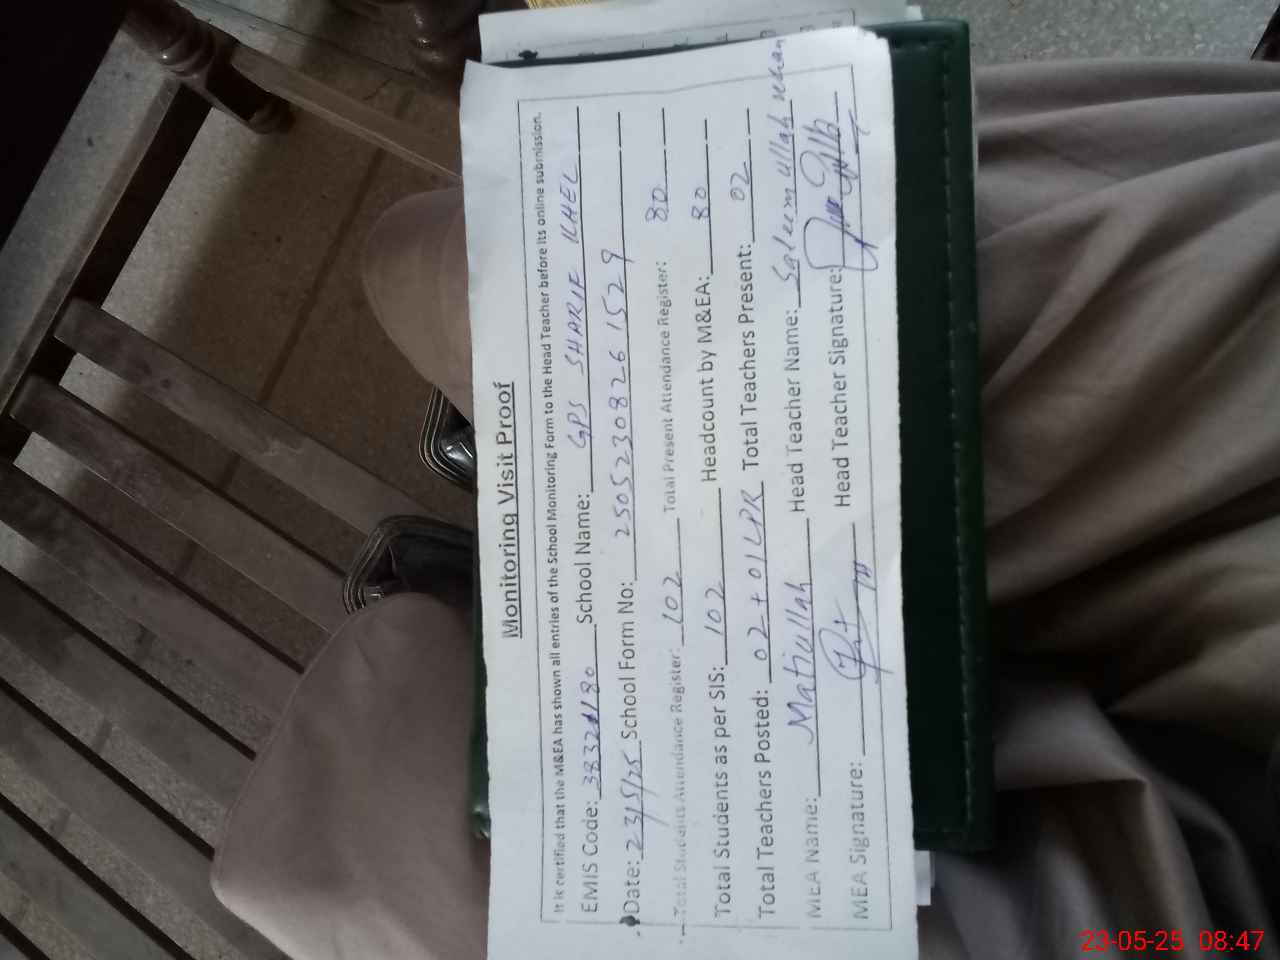 Monitoring Visit Proof
It is certified that the M&EA has shown all entries of the School Monitoring Form to the Head Teacher before its online submission.
EMIS Code: 38321180 School Name: GPS SHARIF KHEL
Date: 23/5/25 School Form No: 2505230826 1529
Total Students Attendance Register: 102 Total Present Attendance Register: 80
Total Students as per SIS: 102 Headcount by M&EA: 80
Total Teachers Posted: 02 + 01 LPR Total Teachers Present: 02
MEA Name: Matiullah Head Teacher Name: Saleem ullah khan
MEA Signature: Head Teacher Signature:
23-05-25 08:47